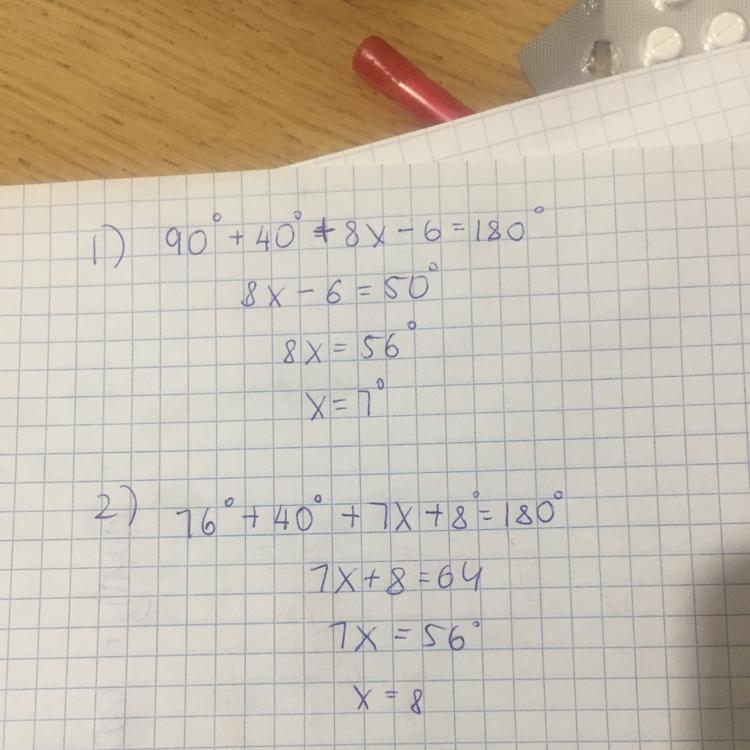 1) 90° + 40° + 8x - 6 = 180°
8x - 6 = 50°
8x = 56°
x = 7°
2) 76° + 40° + 7x + 8° = 180°
7x + 8 = 64
7x = 56°
x = 8